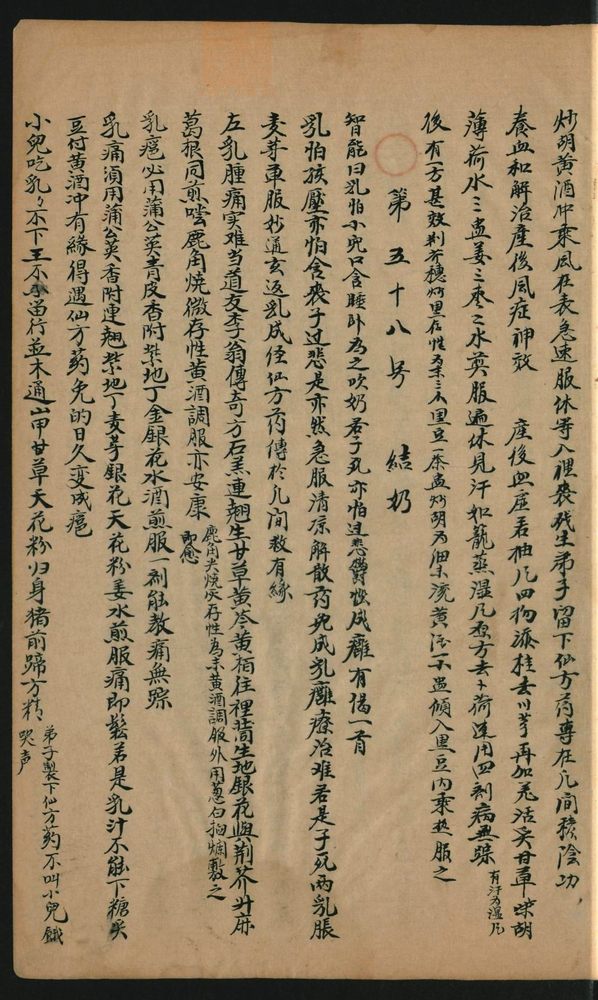 炒胡黄酒冲乘风在表急速服休等入裡喪残生弟子留下仙方药專在凡間積陰功
養血和解治產後風症神效　產後血虛若抽凡四物添桂去川芎再加羌活炙甘草柴胡
薄荷水三盅姜三枣之水煎服遍休見汗如籠蒸湿凡原方去卜荷連用四剂病無踪
有汗为湿凡
後有一方甚效荆芥穗炒黑存性為末三小黑豆一茶盅炒胡为細末流黄酒一盅傾入黑豆內乘热服之
第五十八号　結奶
智能曰乳怕小兒口含睡卧為之吹奶若子死亦怕过悲鬱恢成癰有偈一首
乳怕孩壓亦怕含喪子过悲是亦然急服清凉解散药免成乳癰療治难若是子死两乳脹
麦芽重服炒通玄返乳成经仙方药傳於凡間教有緣
左乳腫痛实难当道友李翁傳奇方石羔連翹生甘草黄芩黄栢往裡菅生地銀花與荆芥升麻
葛根同煎嚐鹿角燒微存性黄酒調服亦安康
鹿角尖燒灰存性為末黄酒調服外用葱白搗爛敷之
即愈
乳疮必用蒲公英青皮香附紫地丁金銀花水酒煎服一剂能教痛無踪
乳痛須用蒲公英香附連翹紫地丁麦芽銀花天花粉姜水煎服痛即鬆若是乳汁不能下糖炙
豆付黄酒冲有緣得遇仙方药免的日久变成疮
小兒吃乳乳不下王不畄行並木通山甲甘草天花粉归身猪前蹄方精
弟子製下仙方药不叫小兒餓
哭声